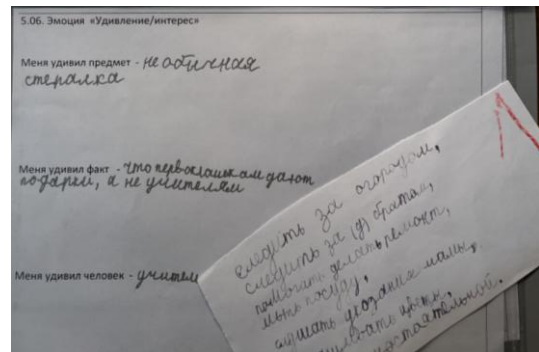 5.06. Эмоция «Удивление/интерес»
Меня удивил предмет - не обичная
стералка
Меня удивил факт - что первоклашкам дают
подарки, а не учителям
Меня удивил человек - учител
следить за огородом,
следить за (д) братом,
помогать делать ремонт,
мыть посуду,
слушать указания мамы,
цветы,